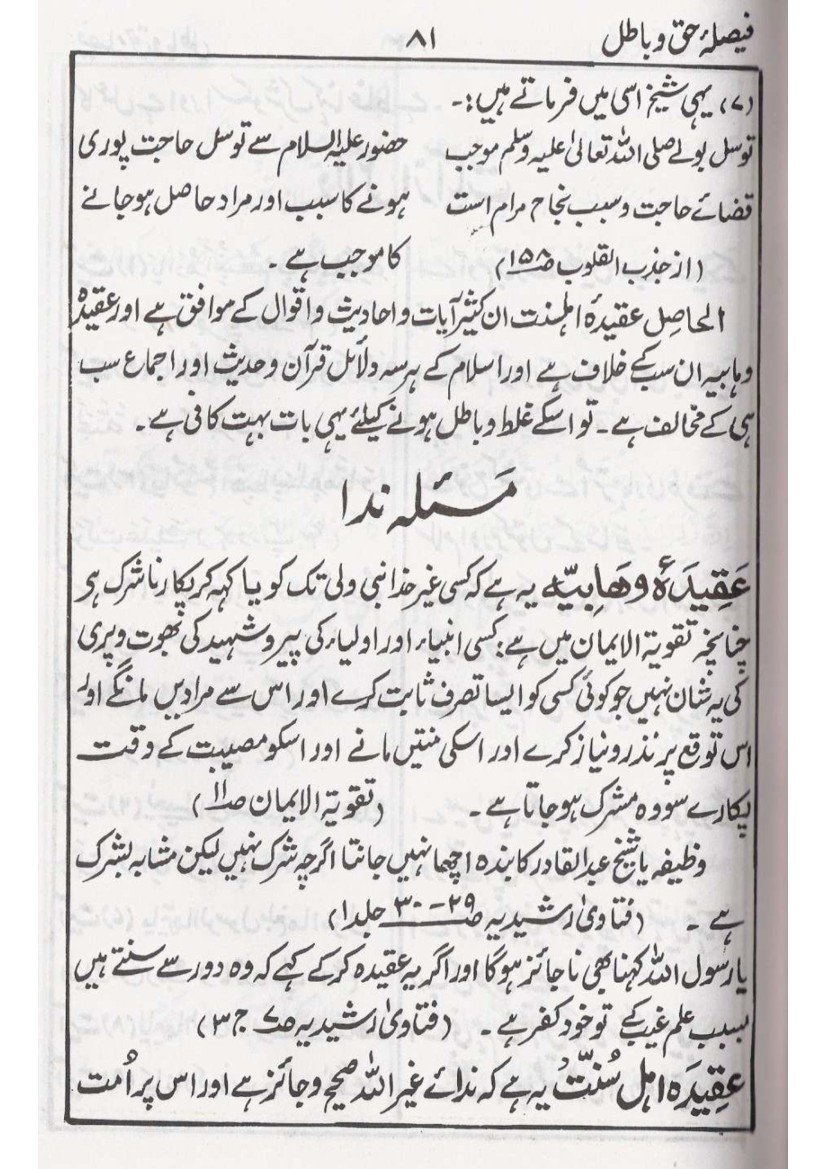 فیصلۂ حق و باطل ۸۱
(۷) یہی شیخ اسی میں فرماتے ہیں:۔
توسل بوے صلی اللہ تعالیٰ علیہ وسلم موجب
قضائے حاجت و سبب نجاح مرام است
(از جذب القلوب ص۱۵۸)
حضور علیہ السلام سے توسل حاجت پوری
ہونے کا سبب اور مراد حاصل ہو جانے
کا موجب ہے ۔
الحاصل عقیدۂ اہلسنت ان کثیر آیات و احادیث و اقوال کے موافق ہے اور عقیدۂ
وہابیہ ان سب کے خلاف ہے اور اسلام کے ہر سہ دلائل قرآن و حدیث اور اجماع سب
ہی کے مخالف ہے۔ تو اسکے غلط و باطل ہونے کیلئے یہی بات بہت کافی ہے۔
مسئلہ ندا
عقیدۂ وھابیہ یہ ہے کہ کسی غیر خدا نبی ولی تک کو یا کہہ کر پکارنا شرک ہی
چنانچہ تقویۃ الایمان میں ہے: کسی انبیاء اور اولیاء کی پیر و شہید کی بھوت و پری
کی یہ شان نہیں جو کوئی کسی کو ایسا تصرف ثابت کرے اور اس سے مرادیں مانگے اور
اس توقع پر نذر و نیاز کرے اور اسکی منتیں مانے اور اسکو مصیبت کے وقت
پکارے سو وہ مشرک ہو جاتا ہے ۔ (تقویۃ الایمان ص۱۱)
وظیفہ یا شیخ عبدالقادر کا بندہ اچھا نہیں جانتا اگرچہ شرک نہیں لیکن مشابہ بشرک
ہے ۔ (فتاویٰ رشیدیہ ص۲۹-۳۰ جلد ۱)
یا رسول اللہ کہنا بھی ناجائز ہوگا اور اگر یہ عقیدہ کر کے کہے کہ وہ دور سے سنتے ہیں
بسبب علم غیب کے تو خود کفر ہے ۔ (فتاویٰ رشیدیہ ص۷ ج ۳)
عقیدہ اہل سُنّت یہ ہے کہ ندائے غیر اللہ صحیح و جائز ہے اور اس پر اُمت